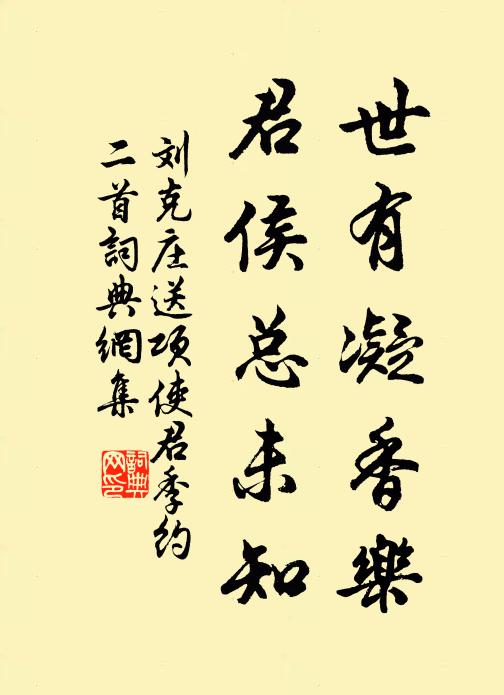 世有凝香樂
君侯总未知
刘克庄送项使君季约
二首詞典網集
詞典网印